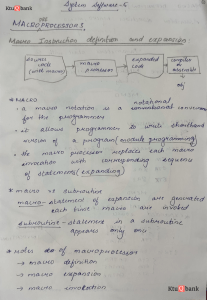 System Software - 5
Ktu bank
MACROPROCESSORS
Macro Instruction definition and expansion
source code (with macro)
macro processor
expanded code
compiler or assembler
obj
* MACRO
- a macro notation is a notational convenience
for the programmer
- it allows programmer to write shorthand
version of a program (module programming)
- the macro processor replaces each macro
invocation with corresponding sequence
of statements (expanding)
* macro vs subroutine
macro - statement of expansion are generated
each time macro are invoked
subroutine - statement in a subroutine
appears only one
* notes of macroprocessor
→ macro definition
→ macro expansion
→ macro invocation
Ktu bank
Ktu bank